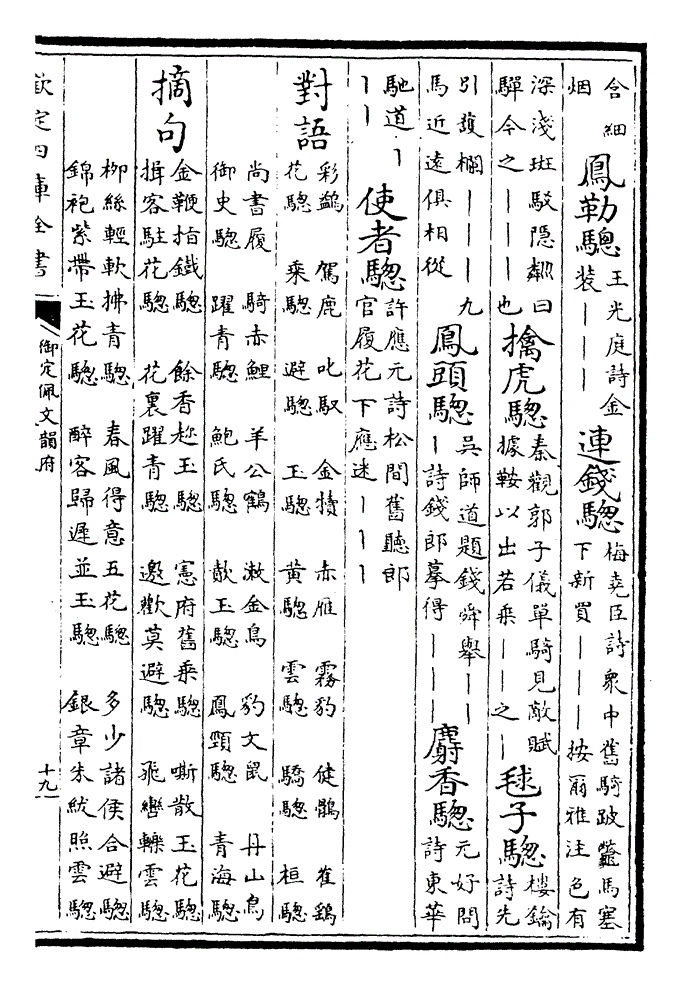 含細烟鳳勒驄王光庭詩金裝｜｜｜連錢驄梅堯臣詩衆中舊騎跛鼈馬塞下新買｜｜｜按爾雅注色有
深淺斑駁隱粼曰驒今之｜｜｜也擒虎驄秦觀郭子儀單騎見敵賦據鞍以出若乘｜｜之｜毬子驄樓鑰詩先
引護欄｜｜｜｜九馬近遠俱相從鳳頭驄吳師道題錢舜舉｜｜｜詩錢郎摹得｜｜｜麝香驄元好問詩東華
馳道｜｜｜使者驄許應元詩松間舊聽郎官履花下應迷｜｜｜
對語彩鷁花驄 駕鹿乘驄 叱馭避驄 金犢玉驄 赤雁黄驄 霧豹雲驄 健鶻驕驄 桓驄
尚書履御史驄 騎赤鯉躍青驄 羊公鶴鮑氏驄 漱金鳥歕玉驄 豹文鼠鳳頸驄 丹山鳥青海驄
摘句金鞭指鐵驄揖客駐花驄 餘香趂玉驄花裏躍青驄 憲府舊乘驄邀歡莫避驄 嘶散玉花驄飛轡轢雲驄
栁絲輕軟拂青驄錦袍縈帶玉花驄 春風得意五花驄醉客歸遲並玉驄 多少諸侯合避驄銀章朱紱照雲驄
欽定四庫全書 御定佩文韻府 十九